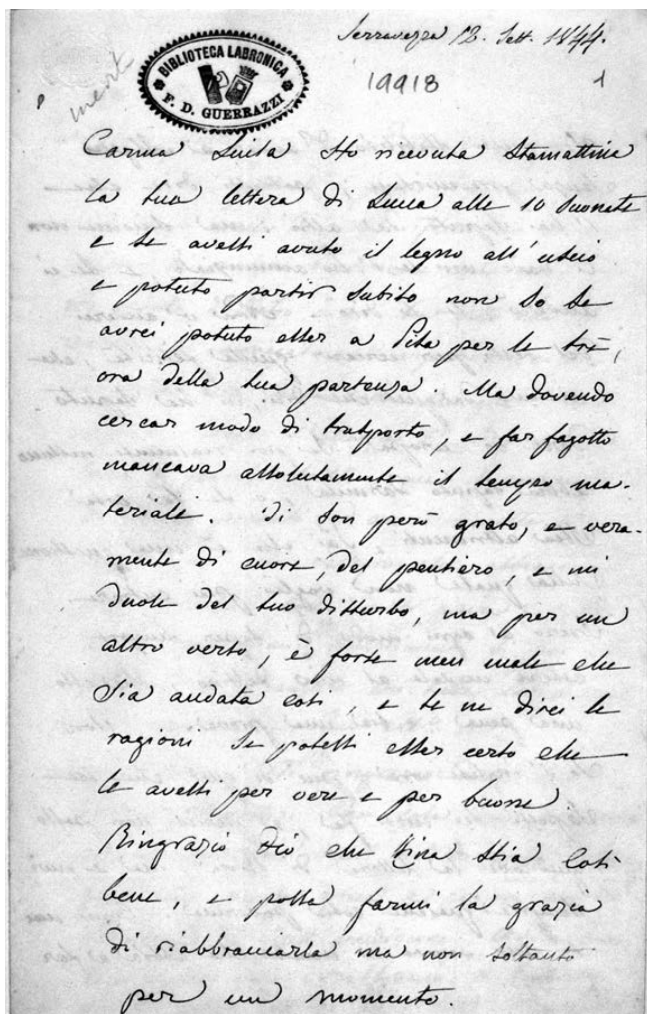 Serravezza 12. Sett. 1844.
BIBLIOTECA LABRONICA
F. D. GUERRAZZI
19918
1
inedit
Carina Luisa Ho ricevuta Stamattina
la tua lettera di Lucca alle 10 suonate
e se avessi avuto il legno all' uscio
e potuto partir subito non so se
avrei potuto esser a Pisa per le tre,
ora della tua partenza. Ma dovendo
cercar modo di trasporto, e far fagotto
mancava assolutamente il tempo ma-
teriale. Ti son però grato, e vera-
mente di cuore, del pensiero, e mi
duole del tuo disturbo, ma per un
altro verso, è forse men male che
sia andata così, e te ne direi le
ragioni se potessi esser certo che
le avessi per vere e per buone.
Ringrazio Dio che Rina stia così
bene, e possa farmi la grazia
di riabbracciarla ma non soltanto
per un momento.